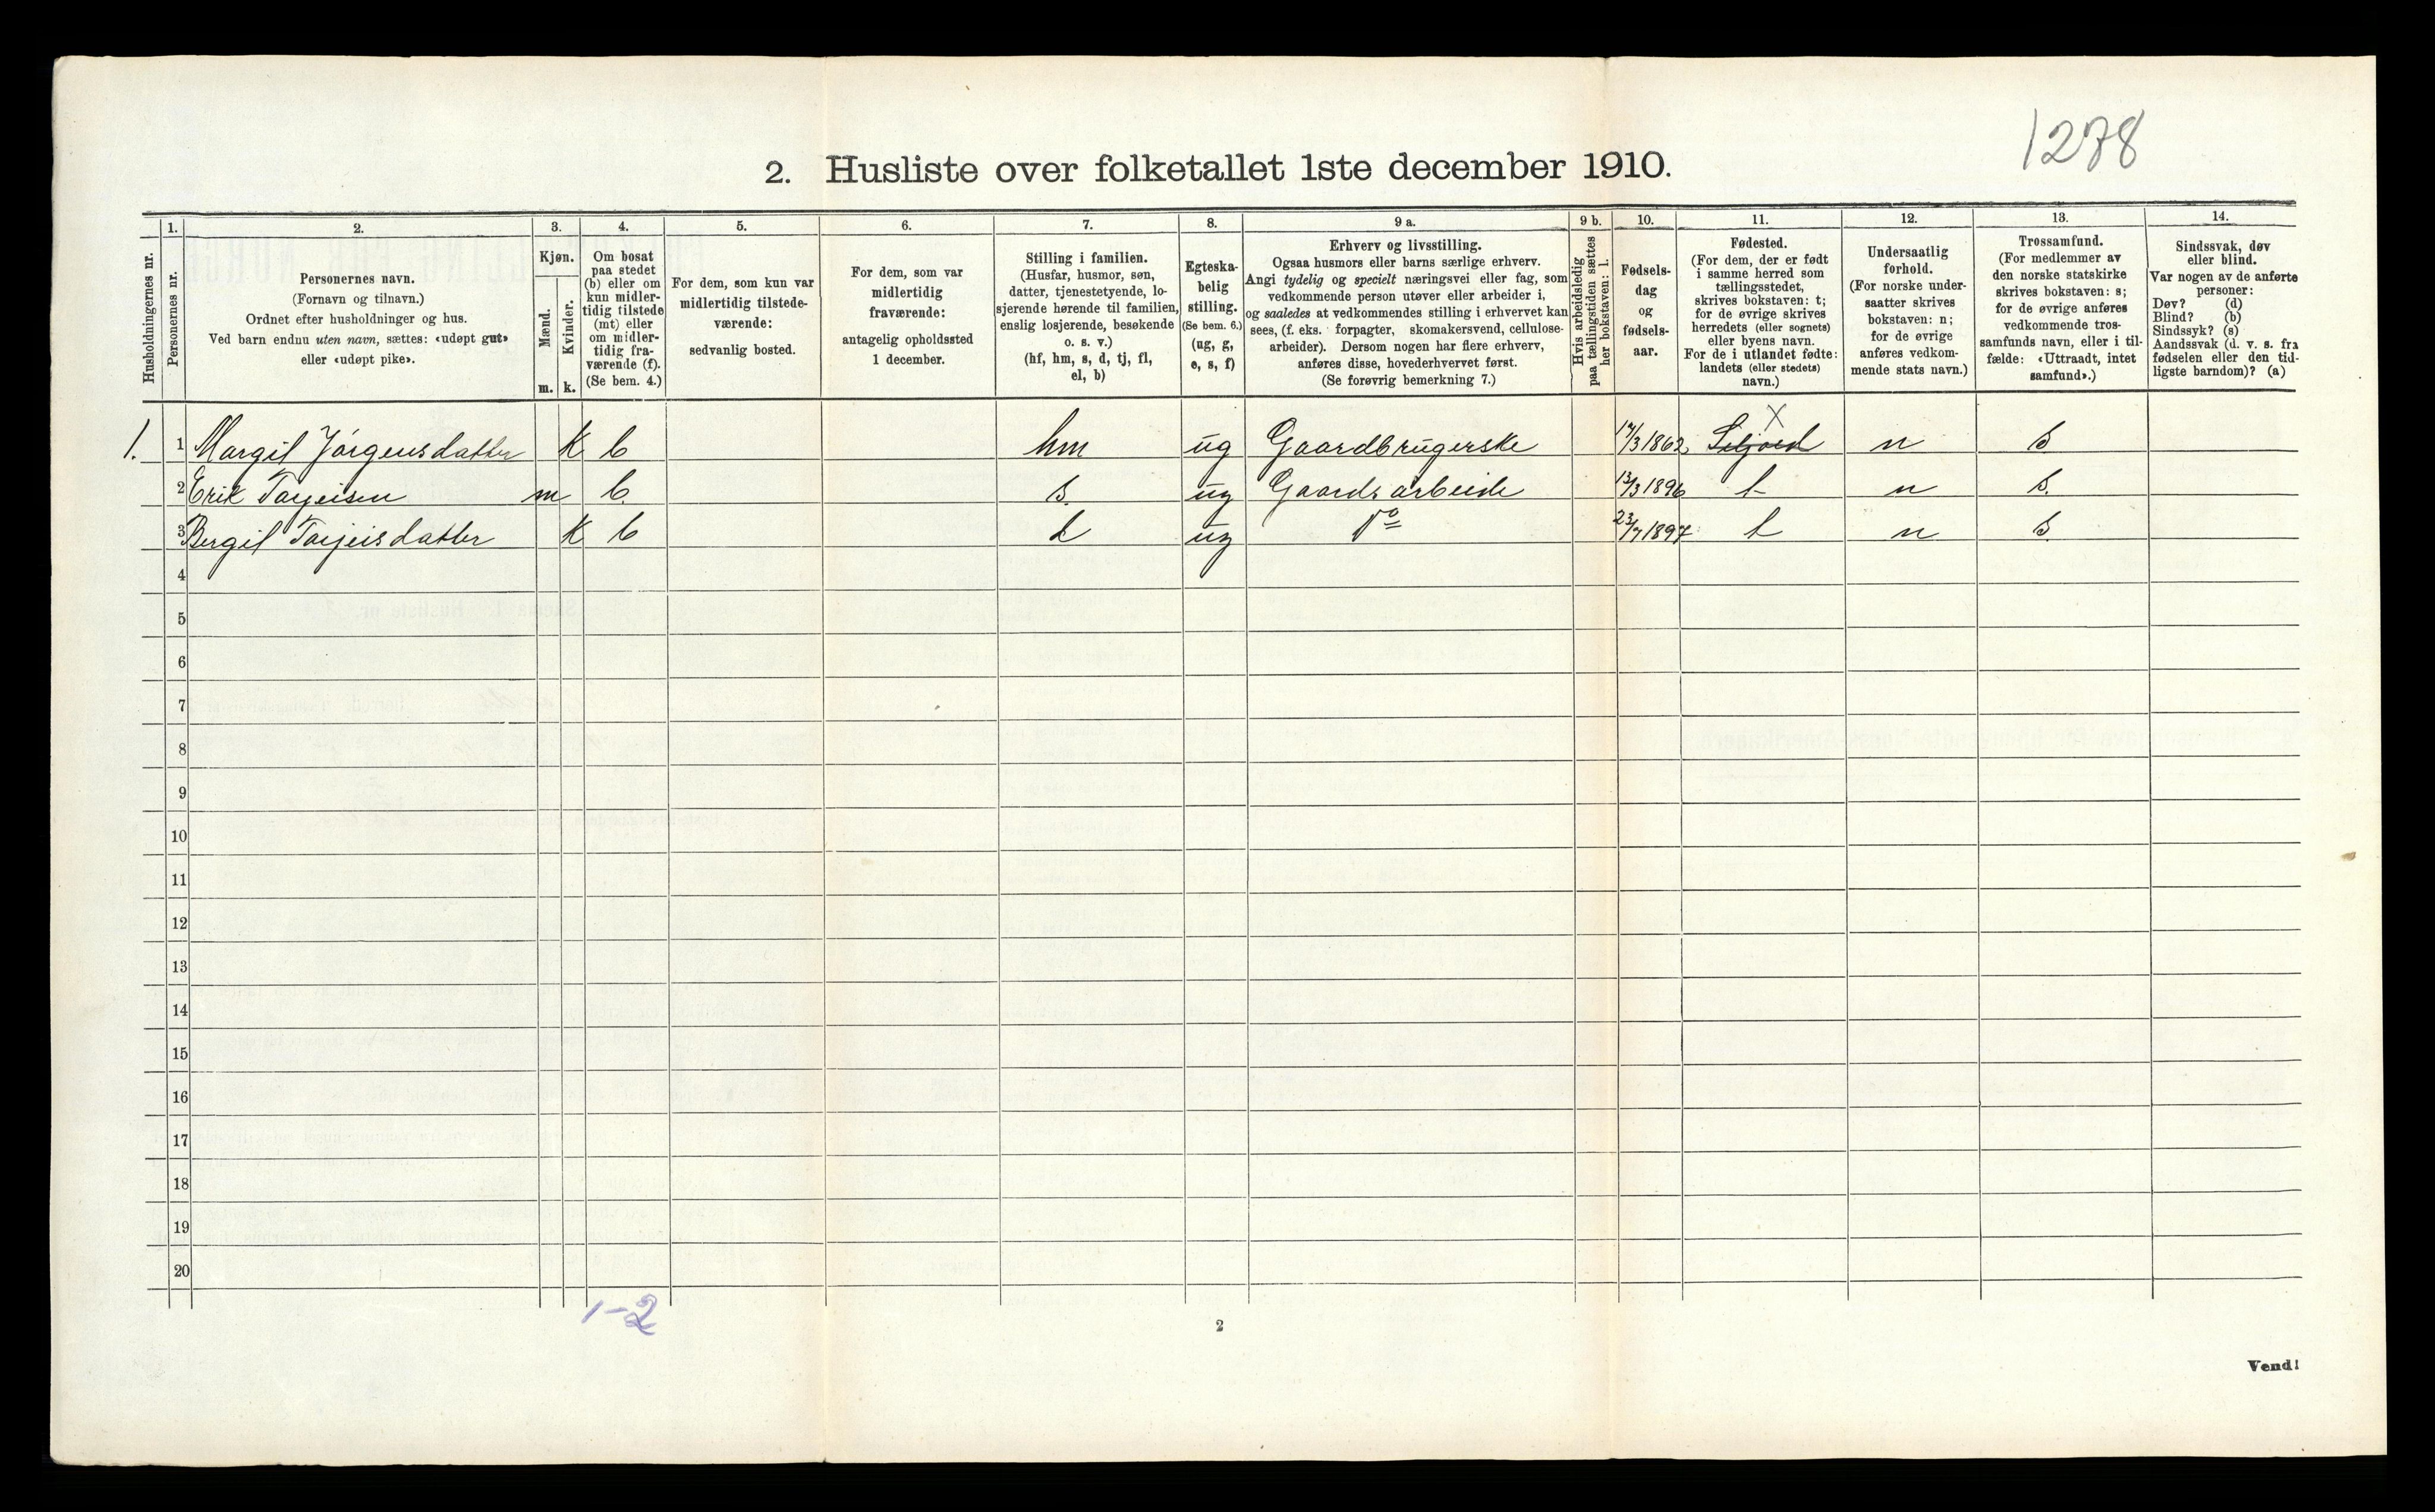 1278
2. Husliste over folketallet 1ste december 1910.
1. 2. 3. 4. 5. 6. 7. 8. 9 a. 9 b. 10. 11. 12. 13. 14.
Husholdningernes nr.
Personernes nr.
Personernes navn.
(Fornavn og tilnavn.)
Ordnet efter husholdninger og hus.
Ved barn endnu uten navn, sættes: «udøpt gut»
eller «udøpt pike».
Kjøn.
Mænd.
Kvinder.
m. k.
Om bosat
paa stedet
(b) eller om
kun midler-
tidig tilstede
(mt) eller
om midler-
tidig fra-
værende (f).
(Se bem. 4.)
For dem, som kun var
midlertidig tilstede-
værende:
sedvanlig bosted.
For dem, som var
midlertidig
fraværende:
antagelig opholdssted
1 december.
Stilling i familien.
(Husfar, husmor, søn,
datter, tjenestetyende, lo-
sjerende hørende til familien,
enslig losjerende, besøkende
o. s. v.)
(hf, hm, s, d, tj, fl,
el, b)
Egteska-
belig
stilling.
(Se bem. 6.)
(ug, g,
e, s, f)
Erhverv og livsstilling.
Ogsaa husmors eller barns særlige erhverv.
Angi tydelig og specielt næringsvei eller fag, som
vedkommende person utøver eller arbeider i,
og saaledes at vedkommendes stilling i erhvervet kan
sees, (f. eks. forpagter, skomakersvend, cellulose-
arbeider). Dersom nogen har flere erhverv,
anføres disse, hovederhvervet først.
(Se forøvrig bemerkning 7.)
Hvis arbeidsledig
paa tællingstiden sættes
her bokstaven: l.
Fødsels-
dag
og
fødsels-
aar.
Fødested.
(For dem, der er født
i samme herred som
tællingsstedet,
skrives bokstaven: t;
for de øvrige skrives
herredets (eller sognets)
eller byens navn.
For de i utlandet fødte:
landets (eller stedets)
navn.)
Undersaatlig
forhold.
(For norske under-
saatter skrives
bokstaven: n;
for de øvrige
anføres vedkom-
mende stats navn.)
Trossamfund.
(For medlemmer av
den norske statskirke
skrives bokstaven: s;
for de øvrige anføres
vedkommende tros-
samfunds navn, eller i til-
fælde: «Uttraadt, intet
samfund».)
Sindssvak, døv
eller blind.
Var nogen av de anførte
personer:
Døv? (d)
Blind? (b)
Sindssyk? (s)
Aandssvak (d. v. s. fra
fødselen eller den tid-
ligste barndom)? (a)
X
1. 1 Margit Jørgensdatter K b hm ug Gaardbrugerske 1862 n s
2 Erik m b. s. ug Gaardsarbeide 13/3 1896 t n s.
3 Bergit K b d ug Do 23/7 1897 t n s.
4
5
6
7
8
9
10
11
12
13
14
15
16
17
18
19
20
1-2
2
Vend!